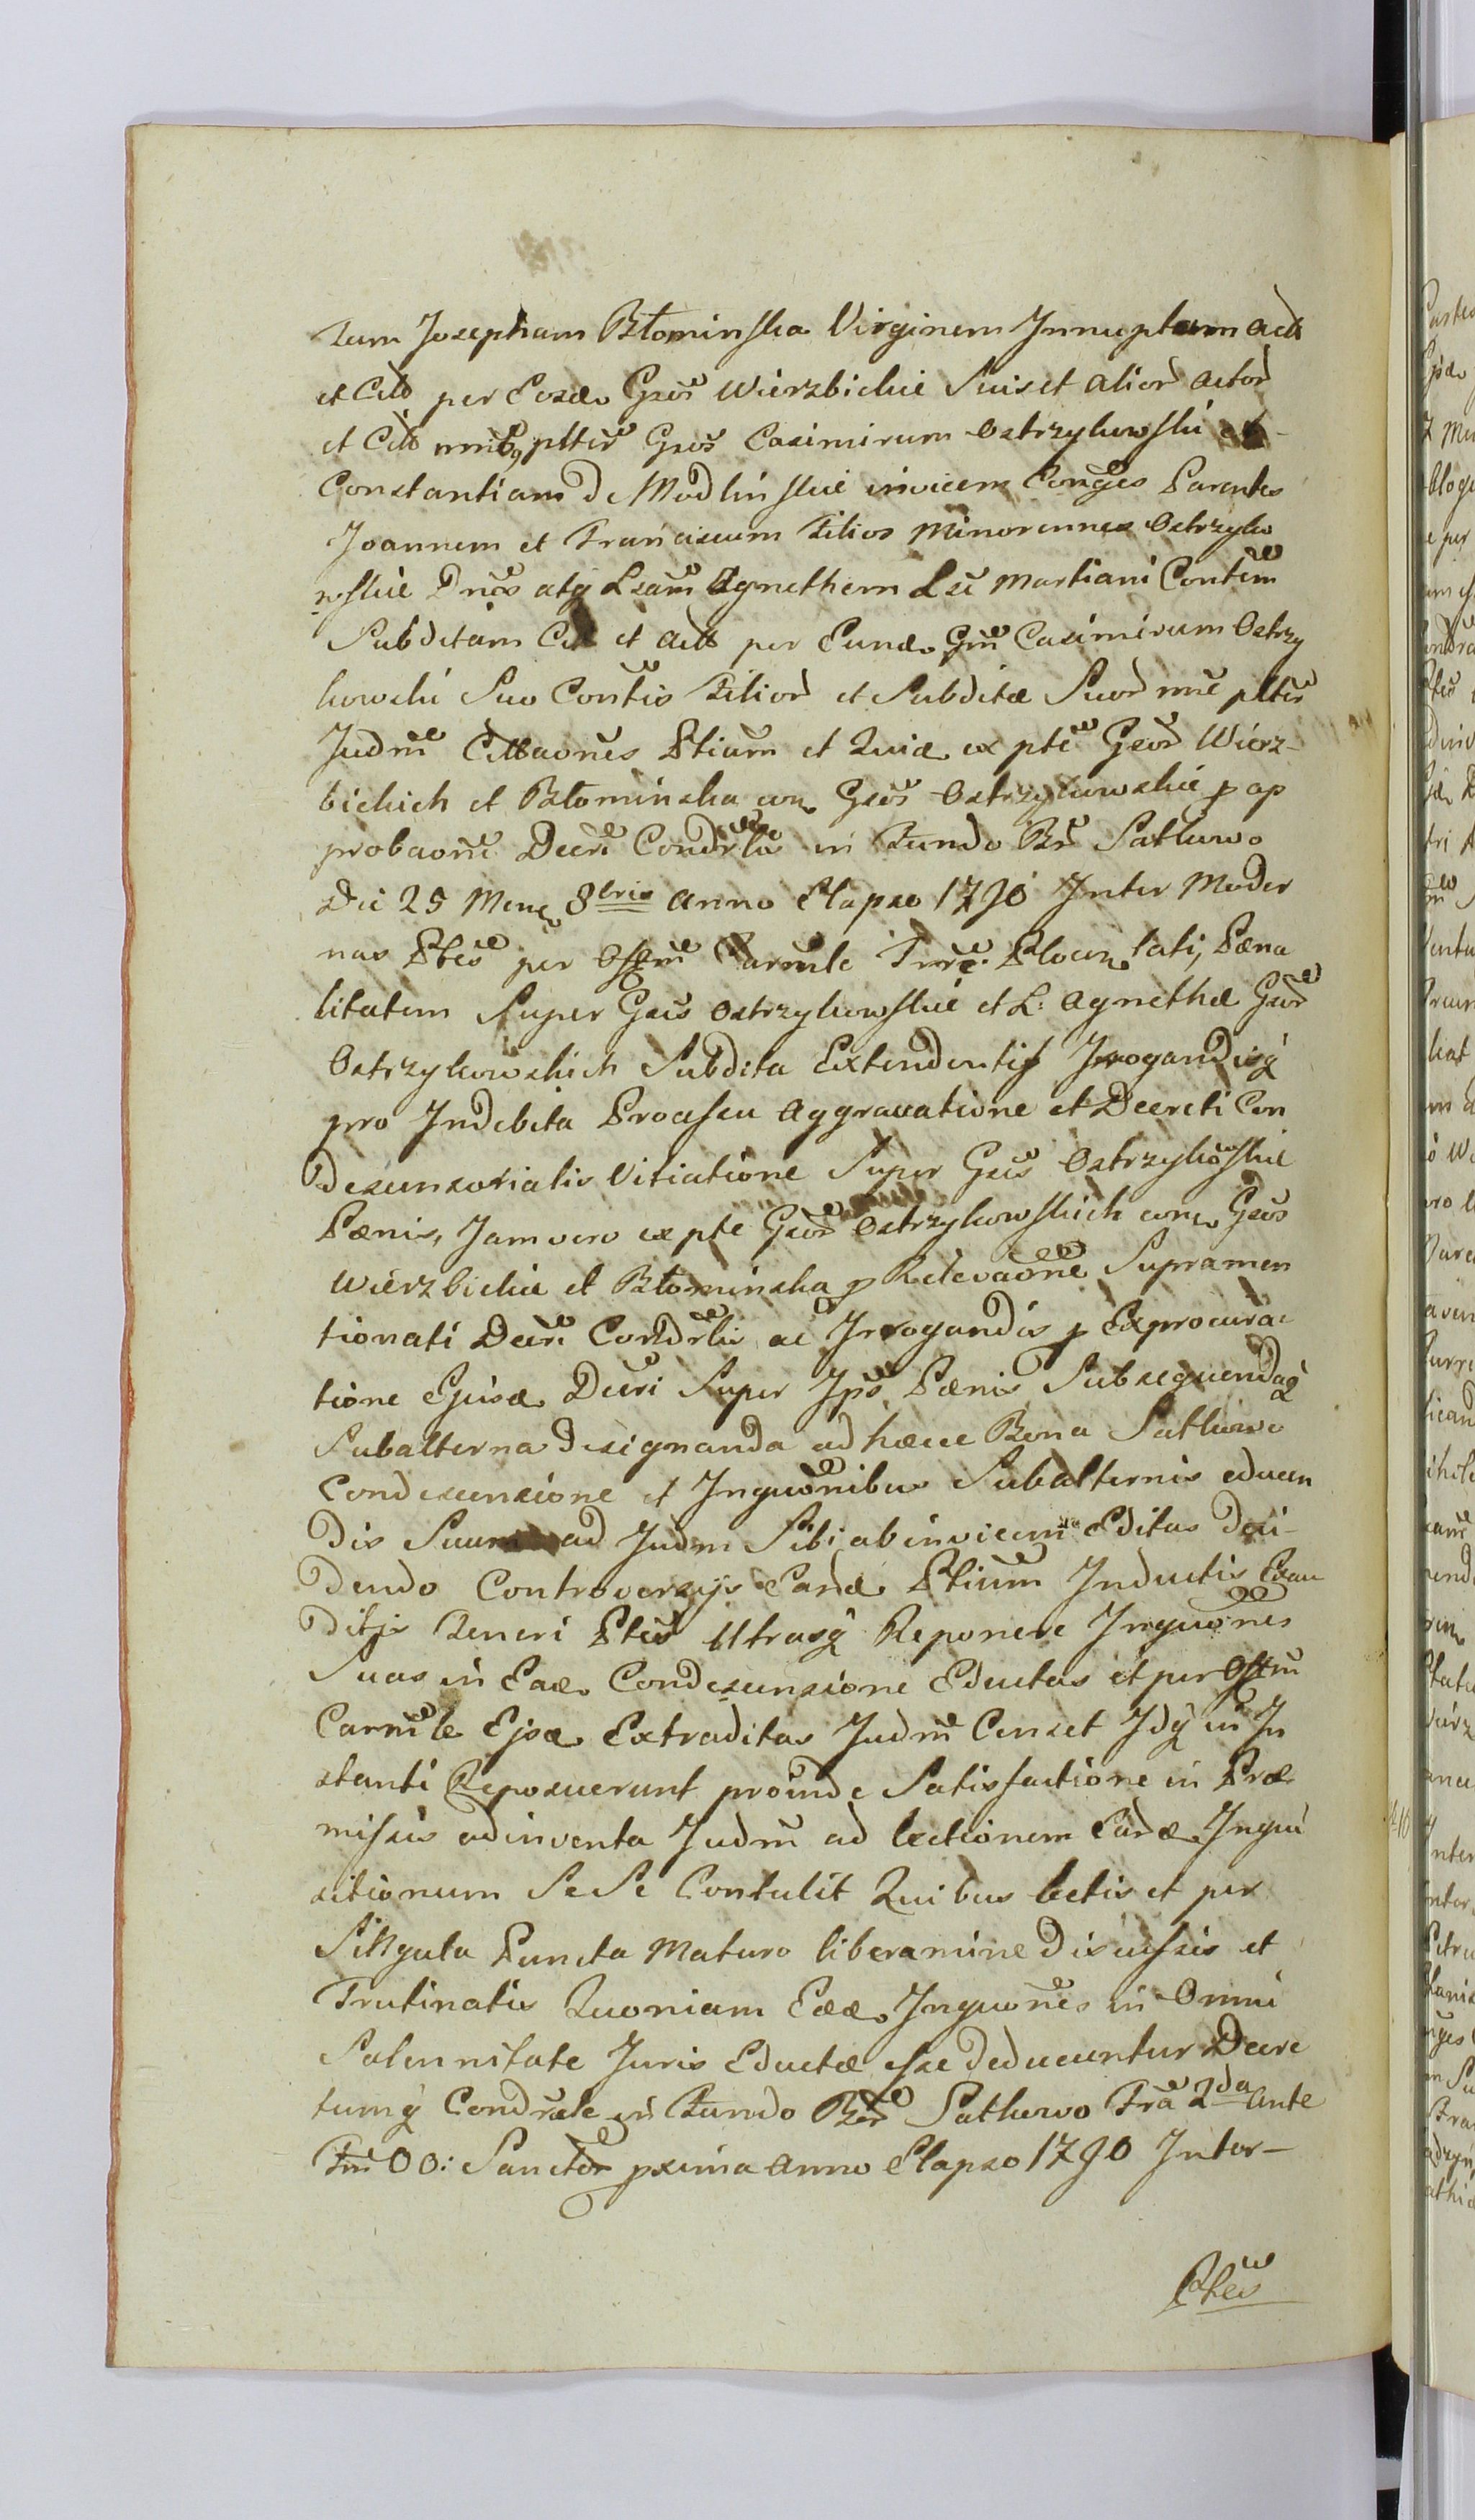 tam Josepham Błominska Virginem Innuptam act
et Citt per Eosd. Gsos Wierzbickie Suis et alior actor
et Citt nnibq plter Gsos Casimirum Ostrzykowski et
Constantiam de Modlinskie invicem Conges Parentes
Joannem et Franciscum Filios Minorennes Ostrzyko
wskie Dnos atq Lsam Agnethem Lsi Martiani Contem
Subditam Cit et actt per Eund. Gm Casimirum Ostrzy
kowski Suo Contis Filior et Subditæ Suor nne plter
Judm Cittaones Ptium et Quia ex pte Gsor Wierz-
bickich et Błominska con. Gsos Ostrzykowskie p ap
probaone Decri Condrlis in Fundo Br Satkowo
Die 25 Mens 8bris anno Elapso 1790 Inter Moder
nas Ptes per Offm Tre. Plocen. lati, Pæna
litatem Super Gsis Ostrzykowskie et L: Agnethæ Gsor
Ostrzykowskich Subdita Extendentis Irrogandisq
pro Indebita Processu Aggravatione et Decreti Con
descensorialis Vitiatione Super Gsis Ostrzykowskie
Pænis, Jam vero ex pte Gsor Ostrzykowskich con. Gsos
Wierzbickie et Błominska p Relevaone Supramen
tionati Decri Condrlis ac Irrogandis p Exprocura-
tione Ejusd. Decri Super Ipsis Pænis Subsequendaq
Subalterna designanda ad hæcce Bona Satkowo
Condescensione et Inquonibus Subalternis educen
dis Suum ad Judm Sibi ab invicem Editas Deci-
dendo Controversijs Eard. Ptium Inductis Exau
ditis Teneri Ptes Utrasq Reponere Inquones
Suas in Ead. Condescensione Eductas et per Offm
Carnle Ejsd. Extraditas Judm Censet Idq in In
stanti Reposuerunt proinde Satisfactione in Præ
missis adinventa Judm ad lectionem Eard. Inqui
sitionum SeSe Contulit Quibus lectis et per
Singula Puncta Maturo liberamine discussis et
Trutinatis Quoniam Eæd. Inquones in Omni
Solennitate Juris Eductæ esse deducuntur Decre
tumq Condrale in Fundo Bor Satkowo Fra 2da ante
Fm OO: Sanctor pxima anno Elapso 1790 Inter-
Ptes